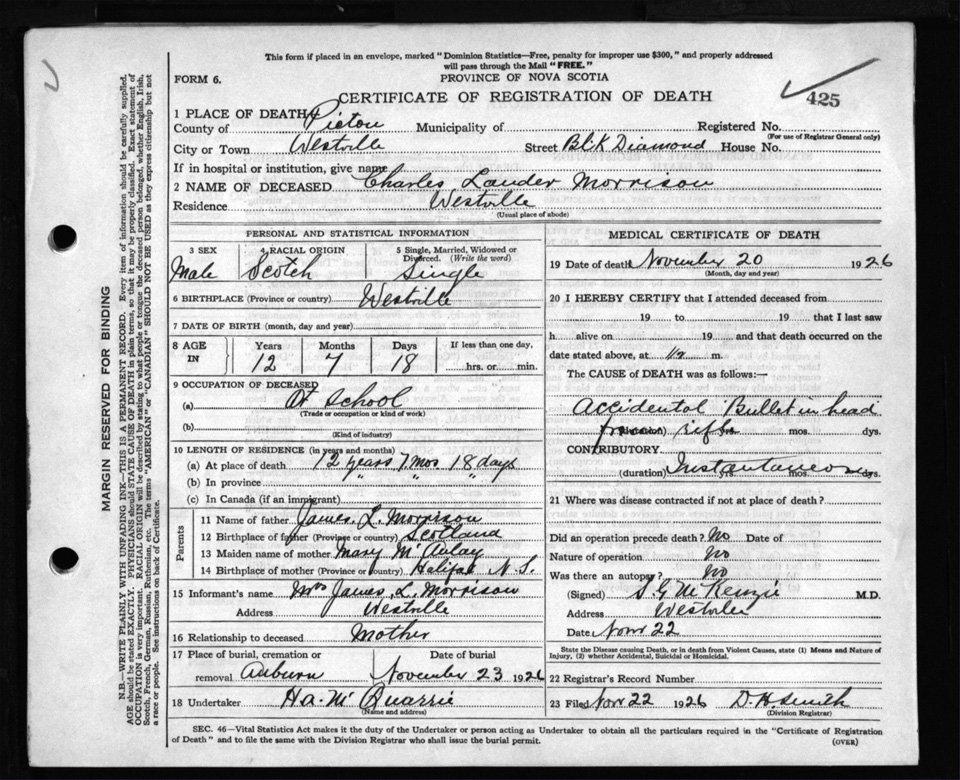 This form if placed in an envelope, marked "Dominion Statistics—Free, penalty for improper use $300," and properly addressed
will pass through the Mail "FREE."
FORM 6.
PROVINCE OF NOVA SCOTIA
CERTIFICATE OF REGISTRATION OF DEATH
425
1 PLACE OF DEATH
County of Pictou Municipality of Registered No.
(For use of Registrar General only)
City or Town Westville Street Blk Diamond House No.
If in hospital or institution, give name
2 NAME OF DECEASED Charles Lauder Morrison
Residence Westville
(Usual place of abode)
PERSONAL AND STATISTICAL INFORMATION
3 SEX 4 RACIAL ORIGIN 5 Single, Married, Widowed or
Divorced. (Write the word)
Male Scotch Single
6 BIRTHPLACE (Province or country) Westville
7 DATE OF BIRTH (month, day and year)
8 AGE IN Years Months Days If less than one day,
12 7 18 hrs. or min.
9 OCCUPATION OF DECEASED
(a) At School
(Trade or occupation or kind of work)
(b)
(Kind of industry)
10 LENGTH OF RESIDENCE (in years and months)
(a) At place of death 12 years 7 mos 18 days
(b) In province " " "
(c) In Canada (if an immigrant)
Parents
11 Name of father James L. Morrison
12 Birthplace of father (Province or country) Scotland
13 Maiden name of mother Mary McAulay
14 Birthplace of mother (Province or country) Halifax N.S.
15 Informant's name Mrs James L. Morrison
Address Westville
16 Relationship to deceased Mother
17 Place of burial, cremation or Date of burial
removal Auburn November 23 1926
18 Undertaker Ha. McQuarrie
(Name and address)
MEDICAL CERTIFICATE OF DEATH
19 Date of death November 20 1926
(Month, day and year)
20 I HEREBY CERTIFY that I attended deceased from
19 to 19 that I last saw
h alive on 19 and that death occurred on the
date stated above, at m.
The CAUSE of DEATH was as follows:—
Accidental Bullet in head
from rifle yrs. mos. dys.
CONTRIBUTORY.
(duration) Instantaneous yrs. mos. dys.
21 Where was disease contracted if not at place of death?
Did an operation precede death? No Date of
Nature of operation No
Was there an autopsy? No
(Signed) S G McKenzie M.D.
Address Westville
Date Novr 22
State the Disease causing Death, or in death from Violent Causes, state (1) Means and Nature of
Injury, (2) whether Accidental, Suicidal or Homicidal.
22 Registrar's Record Number
23 Filed Novr 22 1926 D. H. Smith
(Division Registrar)
SEC. 46—Vital Statistics Act makes it the duty of the Undertaker or person acting as Undertaker to obtain all the particulars required in the "Certificate of Registration
of Death" and to file the same with the Division Registrar who shall issue the burial permit.
(OVER)
MARGIN RESERVED FOR BINDING
N.B.—WRITE PLAINLY WITH UNFADING INK—THIS IS A PERMANENT RECORD. Every item of information should be carefully supplied.
AGE should be stated EXACTLY. PHYSICIANS should STATE CAUSE OF DEATH in plain terms, so that it may be properly classified. Exact statement of
OCCUPATION is very important. RACIAL ORIGIN will be described by stating to what people or tongue the deceased person belonged, whether English, Irish,
Scotch, French, German, Russian, Ruthenian, etc. The terms "AMERICAN" or "CANADIAN" SHOULD NOT BE USED as they express citizenship but not
a race or people. See instructions on back of Certificate.